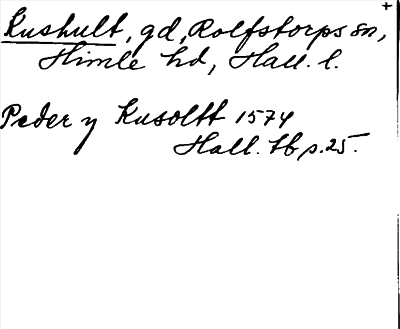 +
Kushult, gd, Rolfstorps sn,
Himle hd, Hall. l.
Peder y Kusoltt 1574
Hall. tb p. 25.